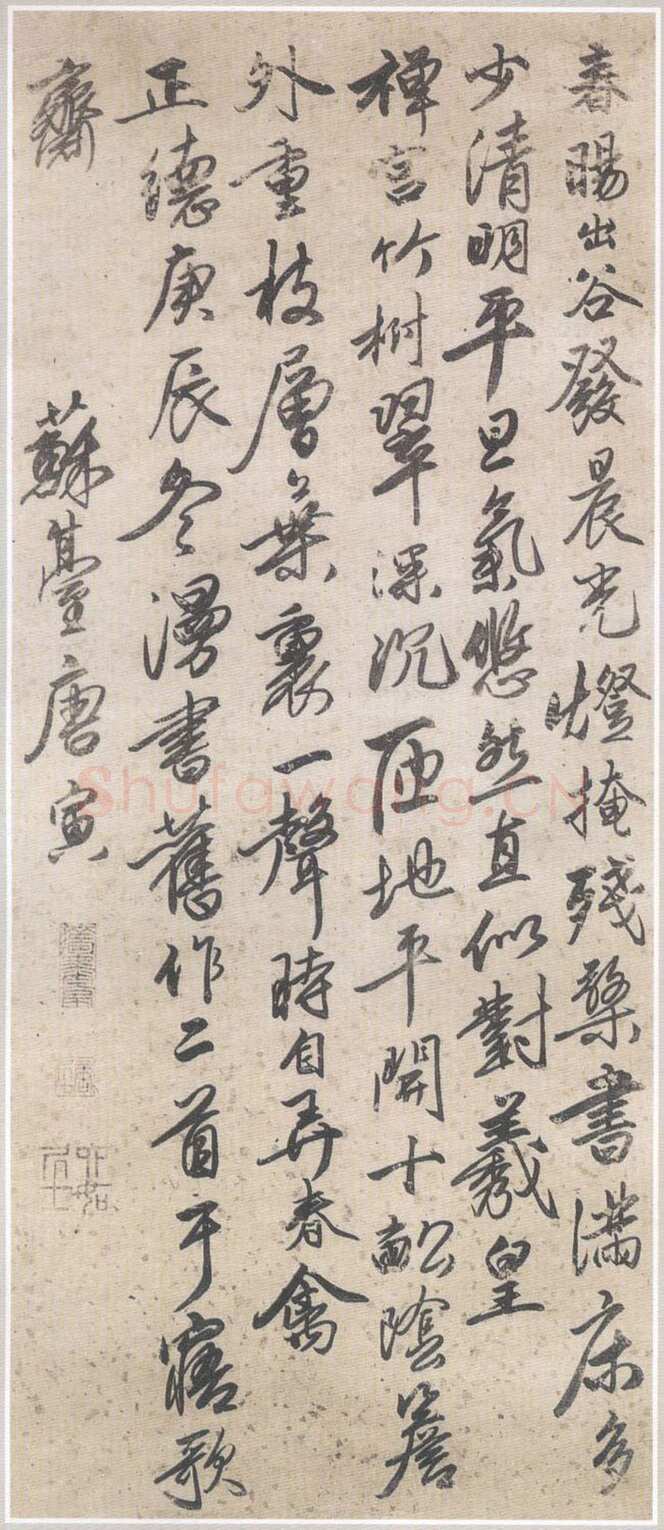 春暘出谷發晨光燈掩殘檠書滿床多
少清明平旦氣悠然直似對羲皇
禪宫竹樹翠深沉匝地平開十畝陰簷
外重枝層葉裏一聲時自弄春禽
正德庚辰冬漫書舊作二首于寤歌
齋
蘇臺唐寅
Shufawang.CN